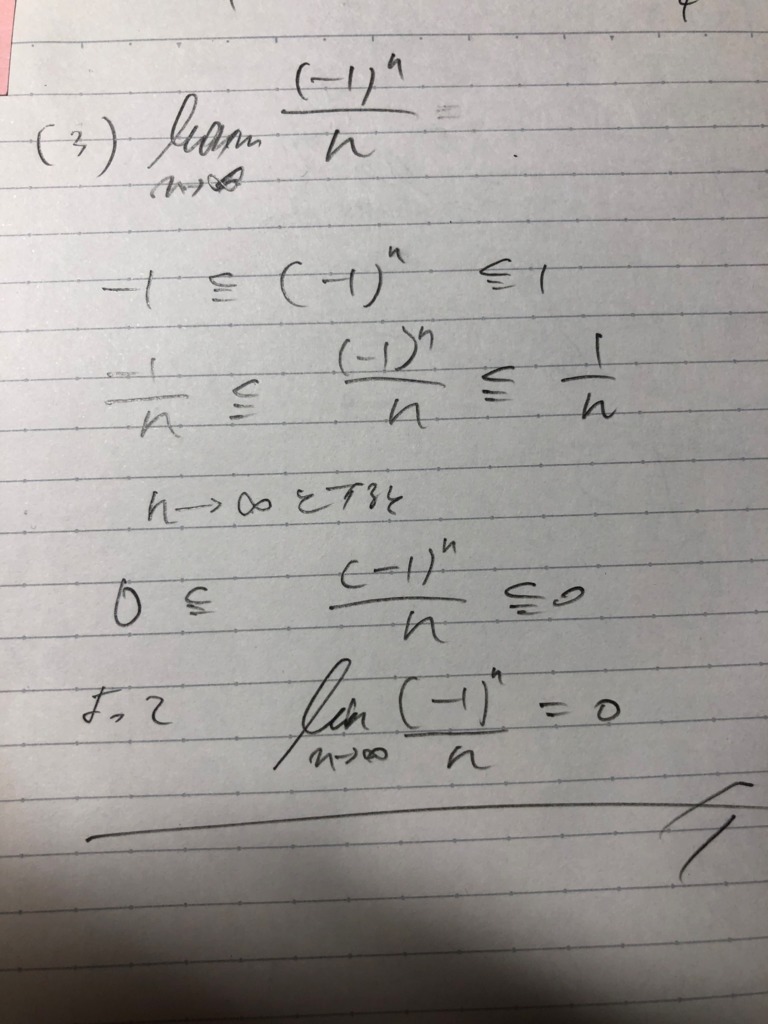 (3) lim n→∞ (-1)^n / n =
-1 ≦ (-1)^n ≦ 1
-1/n ≦ (-1)^n / n ≦ 1/n
n→∞とすると
0 ≦ (-1)^n / n ≦ 0
よって lim n→∞ (-1)^n / n = 0